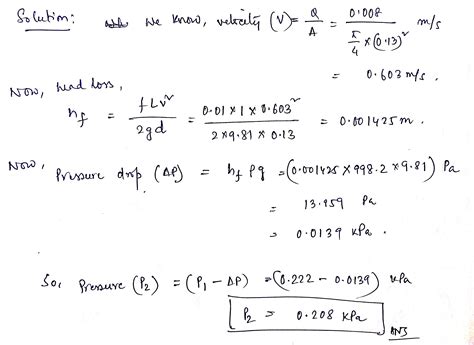 Solution: We know, velocity (V) = Q/A = 0.008 / (π/4 × (0.13)²) m/s
= 0.603 m/s.
Now, head loss,
hf = fLv²/2gd = 0.01 × 1 × 0.603² / 2 × 9.81 × 0.13 = 0.001425 m.
Now, Pressure drop (ΔP) = hf ρg = (0.001425 × 998.2 × 9.81) Pa
= 13.959 Pa
= 0.0139 kPa.
So, Pressure (P2) = (P1 − ΔP) = (0.222 − 0.0139) kPa
P2 = 0.208 kPa
Ans